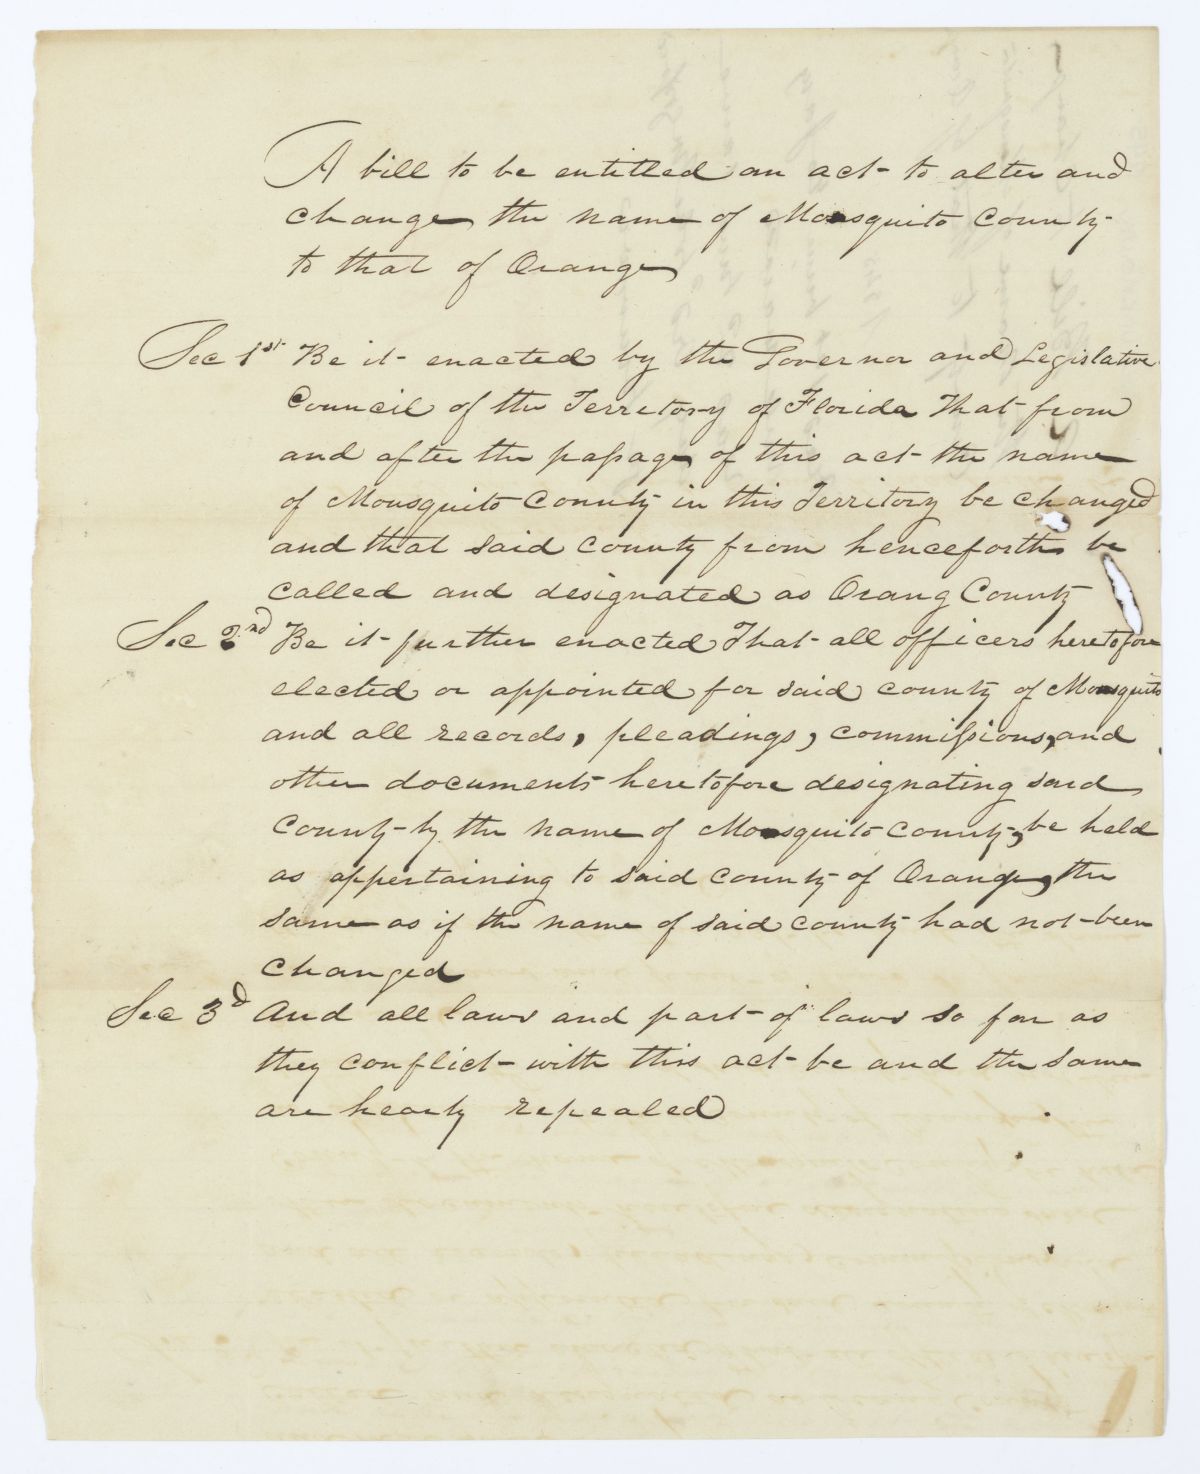 A bill to be entitled an act to alter and
change the name of Mosquito County
to that of Orange
Sec 1st Be it enacted by the Governor and Legislative
Council of the Territory of Florida That from
and after the passage of this act the name
of Mousquito County in this Territory be changed
and that said county from henceforth be
called and designated as Orang County
Sec 2nd Be it further enacted That all officers heretofore
elected or appointed for said county of Mosquito
and all records, pleadings, commissions, and
other documents heretofore designating said
County by the name of Mosquito county, be held
as appertaining to said county of Orange, the
same as if the name of said county had not been
changed
Sec 3d And all laws and part of laws so far as
they conflict with this act be and the same
are hearby repealed